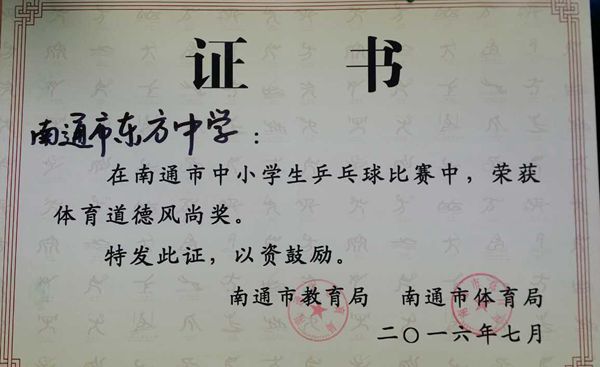 证 书
南通市东方中学：
在南通市中小学生乒乓球比赛中，荣获
体育道德风尚奖。
特发此证，以资鼓励。
南通市教育局 南通市体育局
二〇一六年七月